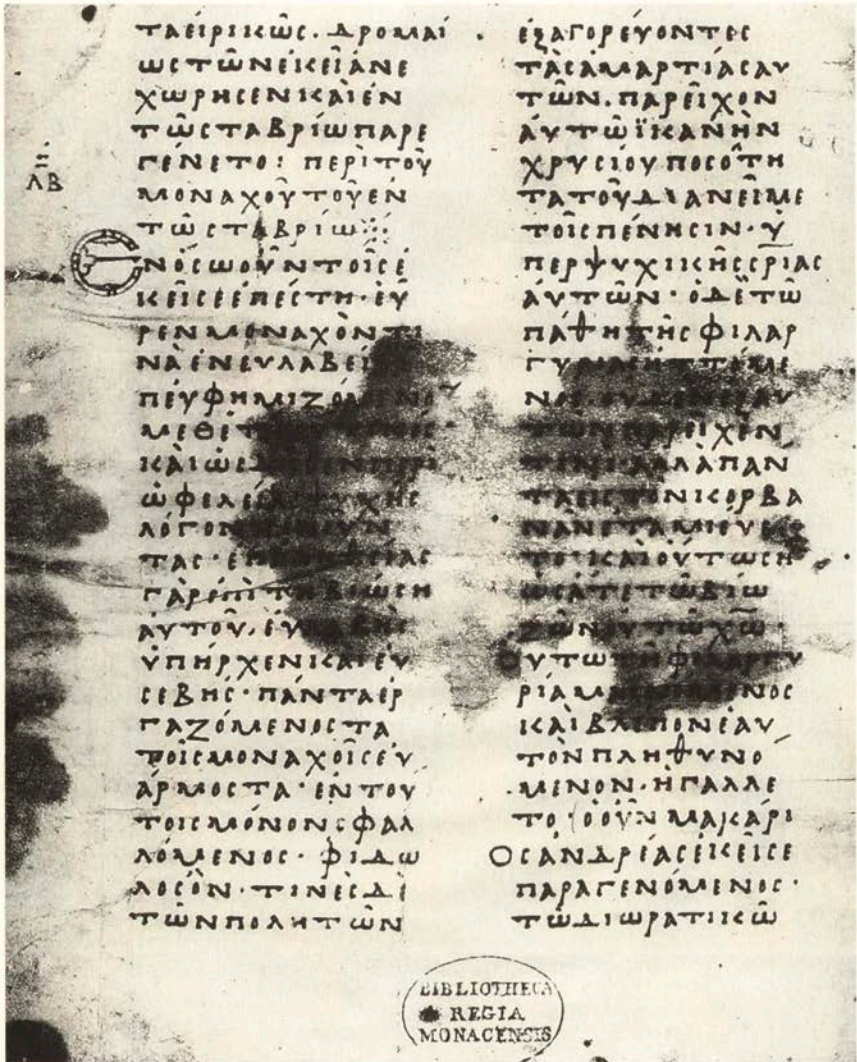 ΤΑΕΙΡΙΚΩϹ. ΔΡΟΜΑΙ
ΩϹΤΩΝΕΚΕΙΑΝΕ
ΧΩΡΗϹΕΝΚΑΙΕΝ
ΤΩϹΤΑΒΡΙΩΠΑΡΕ
ΓΕΝΕΤΟ: ΠΕΡΙΤΟΥ
ΛΒ
ΜΟΝΑΧΟΥΤΟΥΕΝ
ΤΩϹΤΑΒΡΙΩ
ΕΝΟϹΩΟΥΝΤΟΙϹΕ
ΚΕΙϹΕΕΠΕϹΤΗ·ΕΥ
ΡΕΝΜΟΝΑΧΟΝΤΙ
ΝΑΕΝΕΥΛΑΒΕΙ
ΠΕΥΦΗΜΙΖΟΜΕΝΟ
ΜΕΘΕ
ΚΑΙΩ
ΩΦΕΛΕΙ ΨΥΧΗϹ
ΛΟΓΟΝ
ΤΑϹ·
ΓΑΡΕΠΙΤΗΒΙΩϹΗ
ΑΥΤΟΥ. ΕΥΛΑΒΗϹ
ΥΠΗΡΧΕΝΚΑΙΕΥ
ϹΕΒΗϹ·ΠΑΝΤΑΕΡ
ΓΑΖΟΜΕΝΟϹΤΑ
ΤΟΙϹΜΟΝΑΧΟΙϹΕΥ
ΑΡΜΟϹΤΑ·ΕΝΤΟΥ
ΤΟΙϹΜΟΝΟΝϹΦΑΛ
ΛΟΜΕΝΟϹ·ΦΙΔΩ
ΛΟϹΟΝ·ΤΙΝΕϹΔΕ
ΤΩΝΠΟΛΗΤΩΝ
ΕΞΑΓΟΡΕΥΟΝΤΕϹ
ΤΑϹΑΜΑΡΤΙΑϹΑΥ
ΤΩΝ. ΠΑΡΕΙΧΟΝ
ΑΥΤΩΪΚΑΝΗΝ
ΧΡΥϹΙΟΥΠΟϹΟΤΗ
ΤΑΤΟΥΔΙΑΝΕΙΜΕ
ΤΟΙϹΠΕΝΗϹΙΝ·Υ
ΠΕΡΨΥΧΙΚΗϹϹΡΙΑϹ
ΑΥΤΩΝ·ΟΔΕΤΩ
ΠΑΘΗΤΗϹΦΙΛΑΡ
ΓΥΡΙΑϹΗΤΤΩΜΕ
ΝΟϹ·ΟΥΔΕΝΕΞΑΥ
ΤΩΝΠΑΡΕΙΧΕΝ
ΤΕΝΙ·ΑΛΛΑΠΑΝ
ΤΑΕΙϹΤΟΝΚΟΡΒΑ
ΝΑΝΕΤΑΜΙΕΥΕ
ΤΟ·ΚΑΙΟΥΤΩϹΗ
ΩϹΑΤΕΤΩΒΙΩ
ΖΩΝΕΥΤΩΧΩ·
ΟΥΤΩΤΗΦΙΛΑΡΓΥ
ΡΙΑΜΑΙΝΟΜΕΝΟϹ
ΚΑΙΒΛΕΠΟΝΕΑΥ
ΤΟΝΠΛΗΘΥΝΟ
ΜΕΝΟΝ·ΗΓΑΛΛΕ
ΤΟ·ΟΟΥΝΜΑΚΑΡΙ
ΟϹΑΝΔΡΕΑϹΕΚΕΙϹΕ
ΠΑΡΑΓΕΝΟΜΕΝΟϹ·
ΤΩΔΙΩΡΑΤΙΚΩ
BIBLIOTHECA
REGIA
MONACENSIS